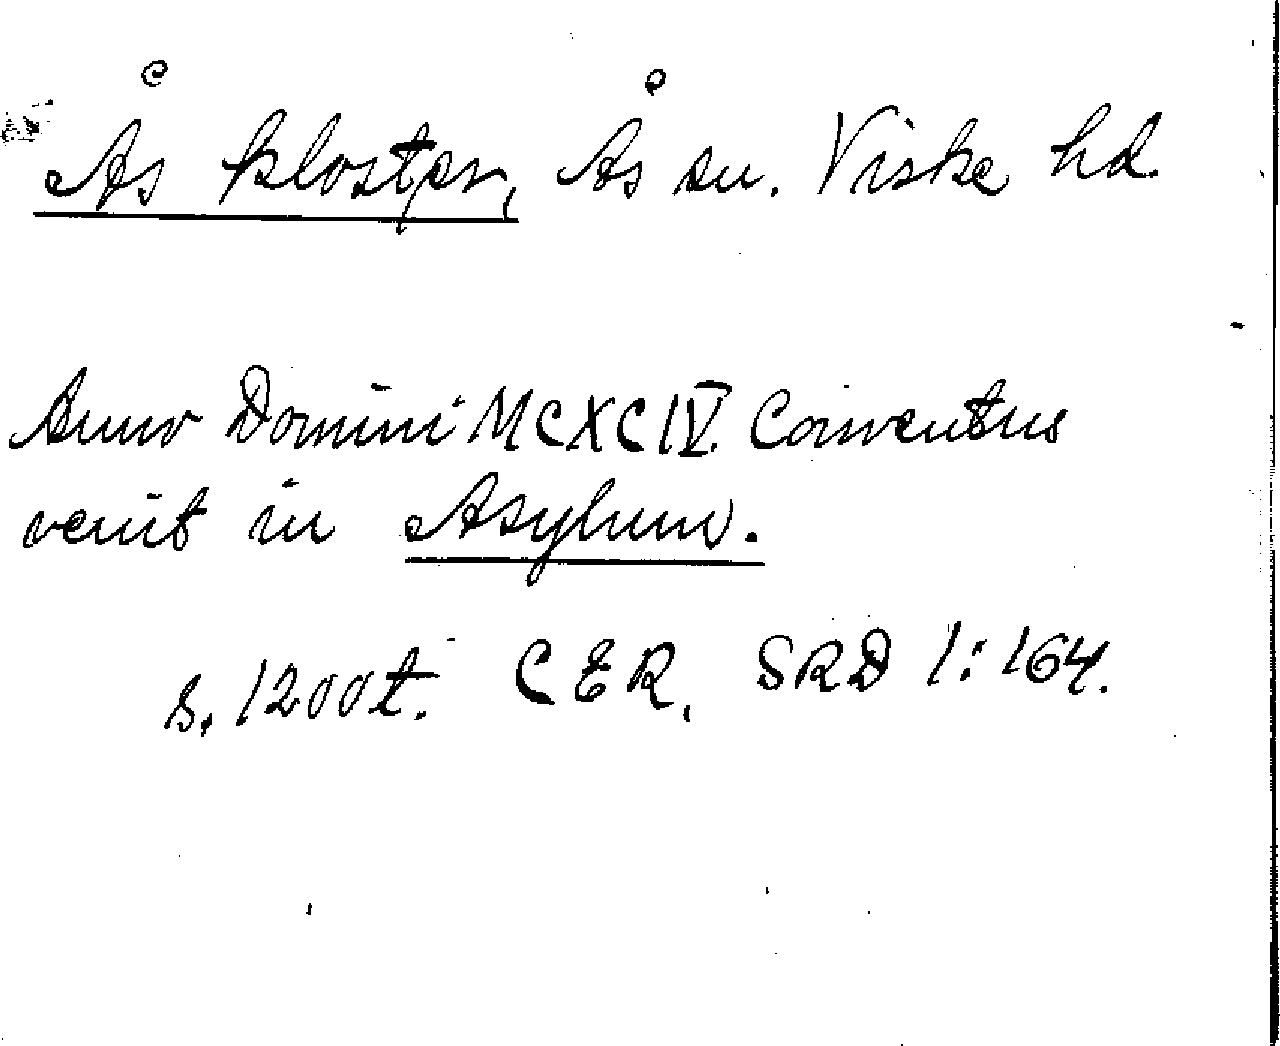 Ås kloster, Ås sn. Viske hd.
Anno Domini MCXCIV. Conventus
venit in Asylum.
s. 1200t. CER, SRD 1:164.